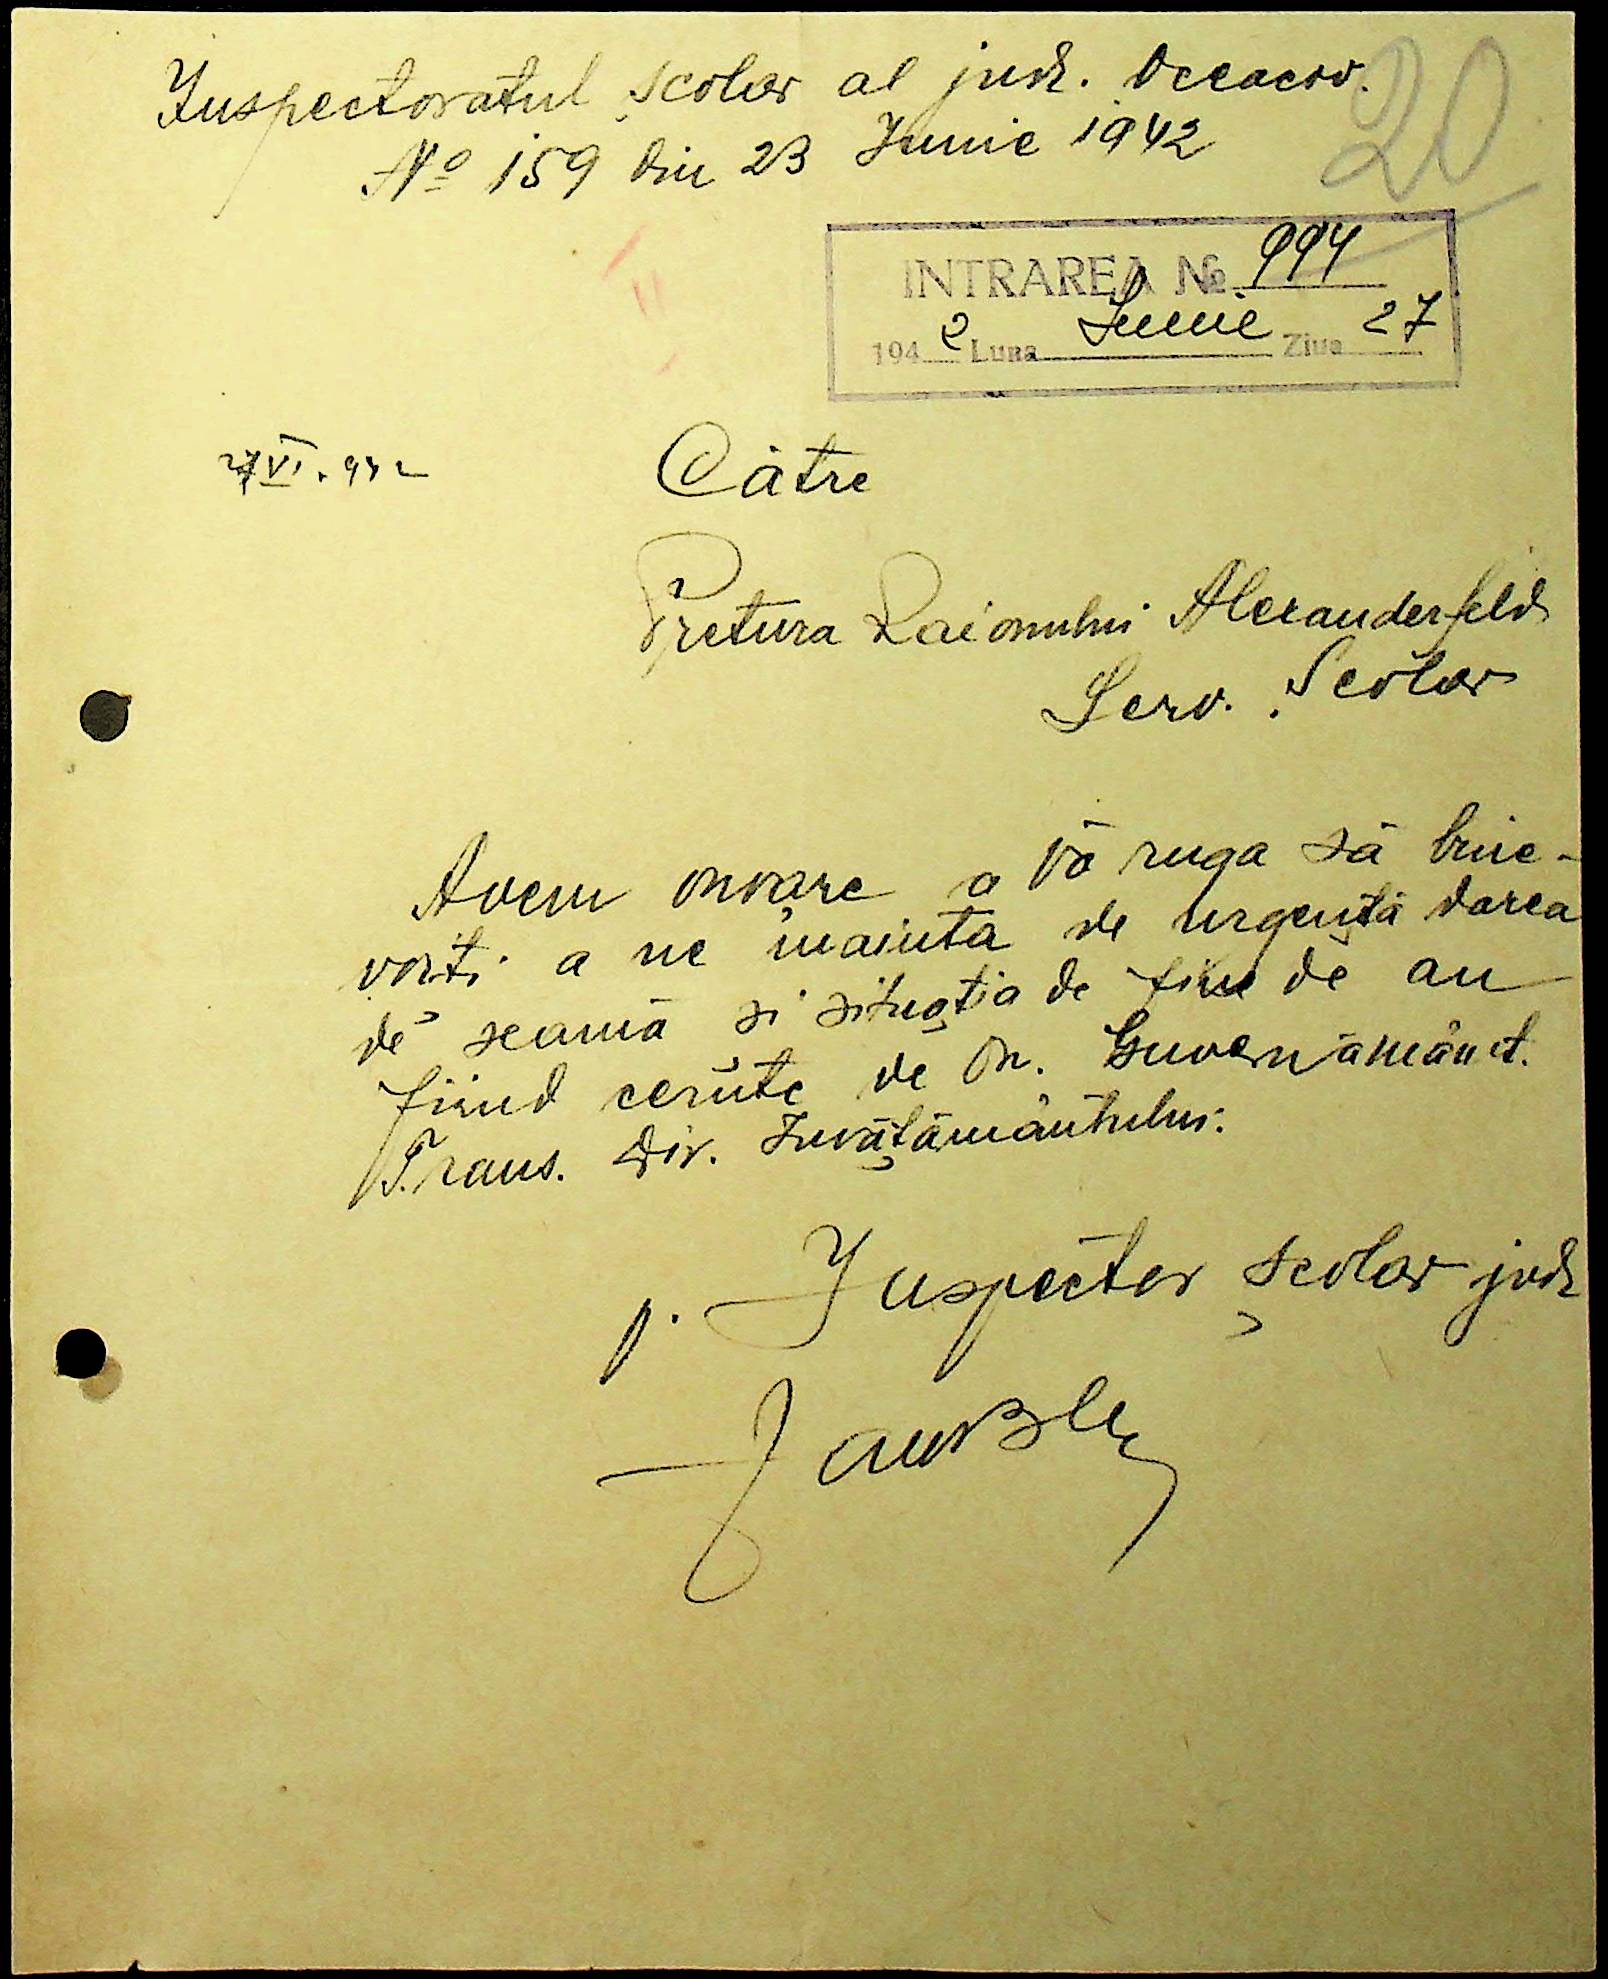 Inspectoratul școlar al jud. Oceacov.
20
Nº 159 din 23 Iunie 1942
INTRAREA № 994
1942 Luna Iunie Ziua 27
27 VI. 942
Către
Pretura Raionului Alexanderfeld
Serv. Școlar
Avem onoare a Vă ruga să bine-
voiți a ne înainta de urgență darea
de seamă și situația de fine de an
fiind cerute de On. Guvernământ.
Trans. Dir. Învățământului.
p. Inspector școlar jud